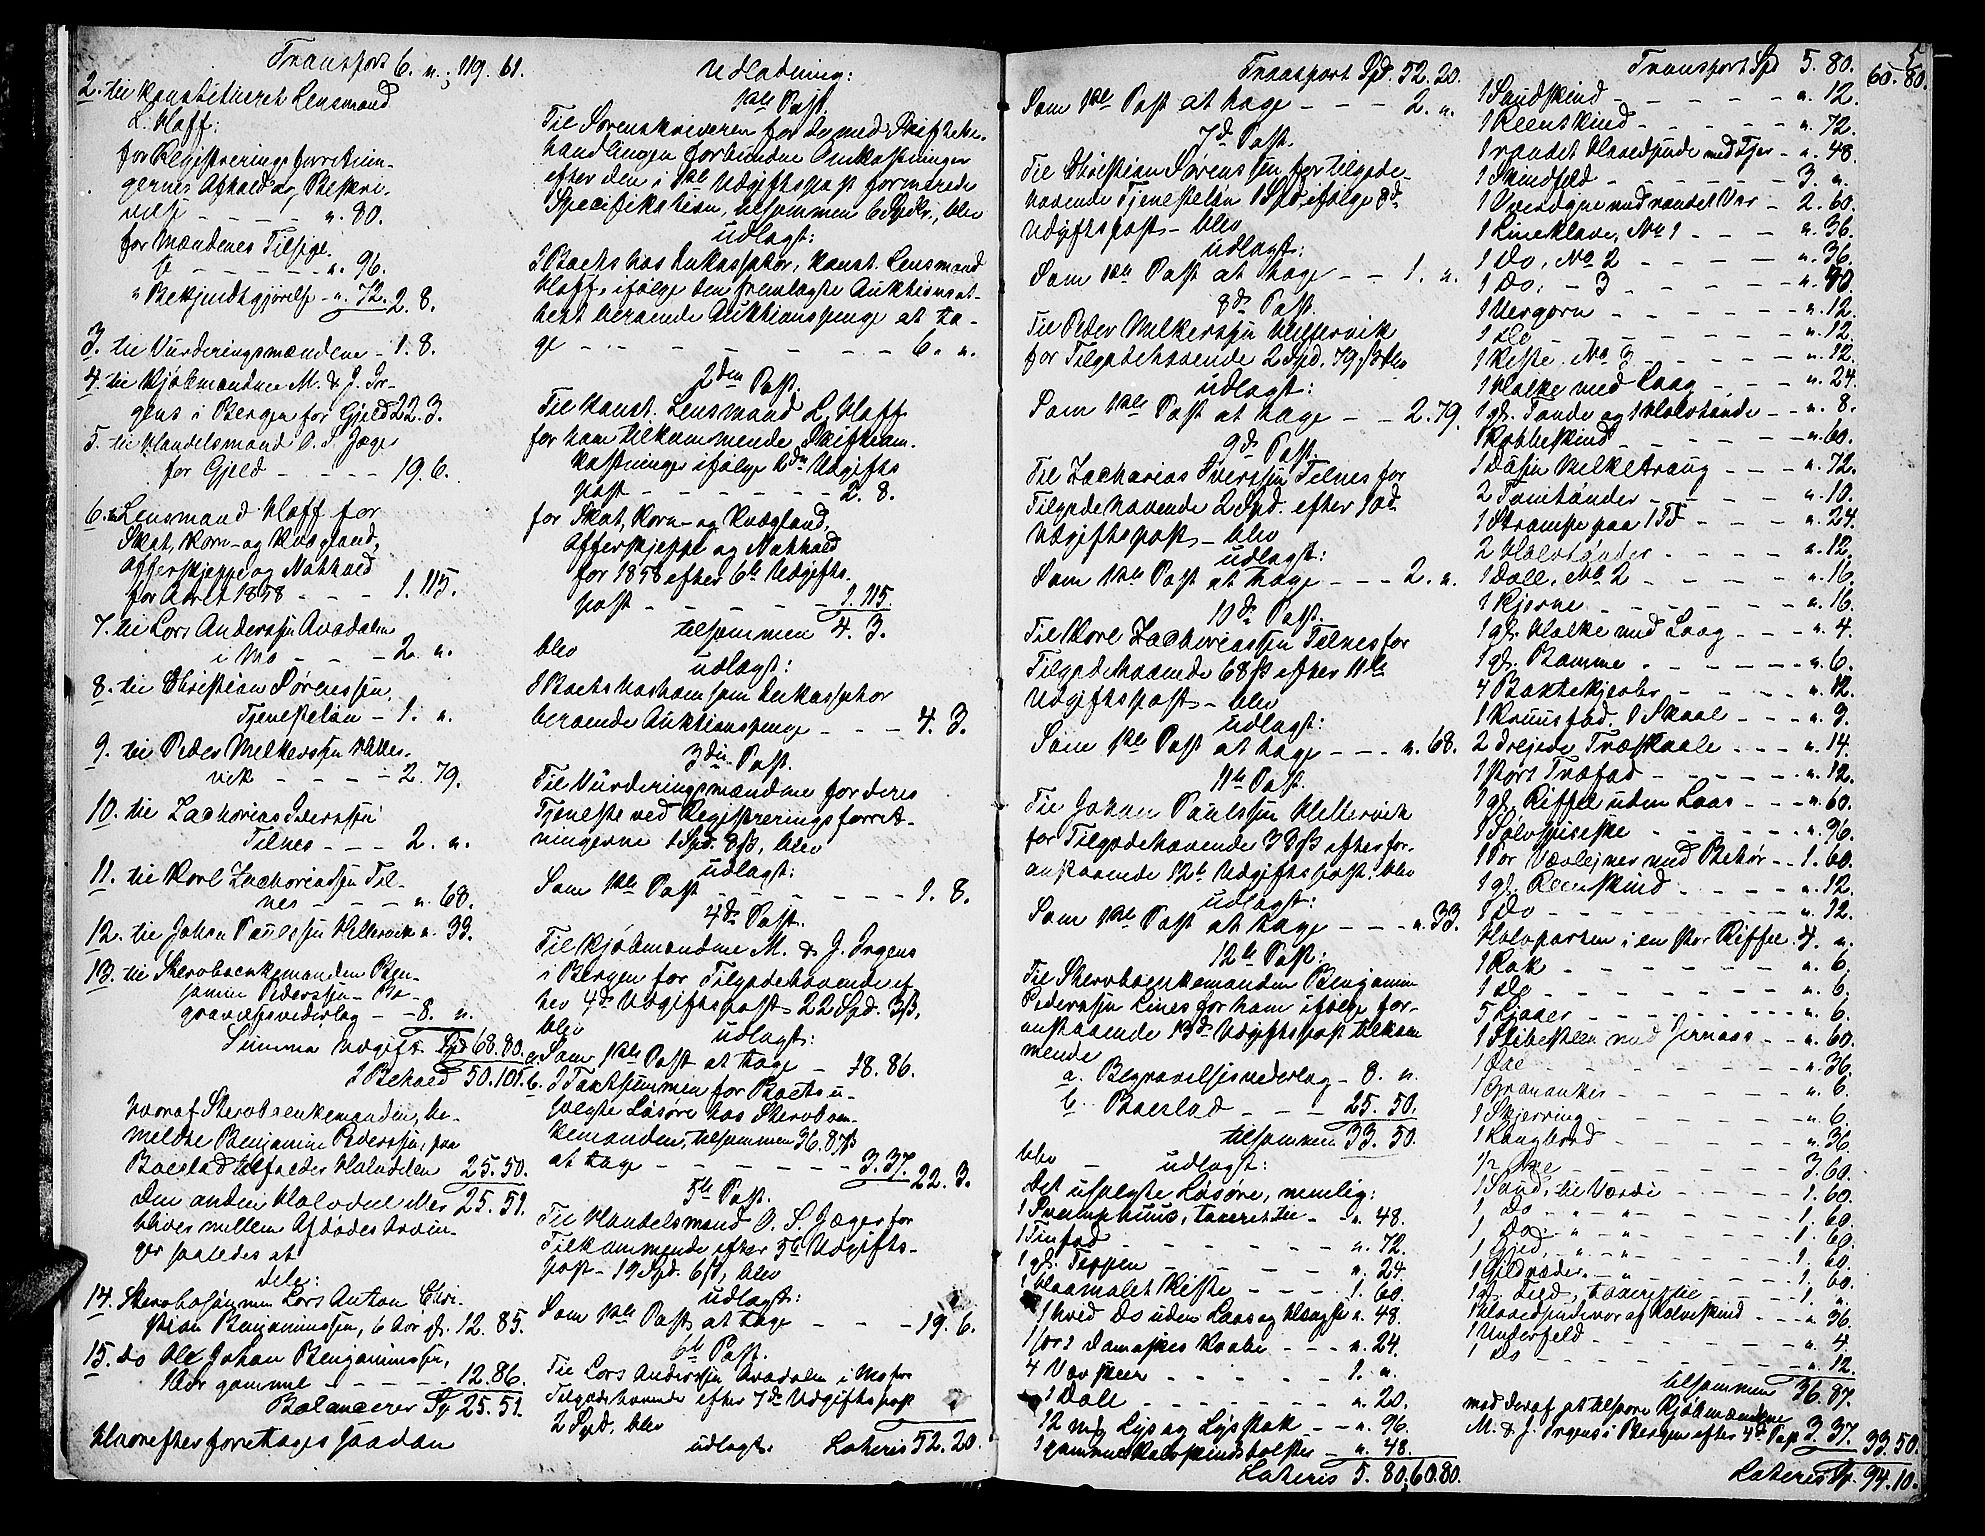 Transport 6. „; 119. 61.
2. til konstitueret Lensmand
L. Hoff:
for Registreringsforretnin-
gernes Afhold og Beskri-
velse - - - - „. 80.
for Mændenes Tilsige.
„. 96.
„ Bekjendtgjørelse - „. 72. 2. 8.
3. til Vurderingsmændene - 1. 8.
4. til Kjøbmændene M. & J. Ir-
gens i Bergen for Gjeld 22. 3.
5. til Handelsmand O. S. Jæger
for Gjeld - - - - 19. 6.
6. Lensmand Hoff for
Skat, Korn- og Kvægland,
Offerskjeppe og Nathold
for Aaret 1858 - - - 1. 115.
7. til Lars Anderssen Avadalen
i Mo - - - - 2. „.
8. til Christian Sørenssen,
Tjenesteløn - 1. „.
9. til Peder Melkerssen Heller-
vik - - - - 2. 79.
10. til Zacharias Iverssen
Telnes - - - 2. „.
11. til Karl Zachariassen Tel-
nes - - - - „. 68.
12. til Johan Paulssen Hellervik „. 33.
13. til Stervboenkemanden Ben-
jamin Pederssen - Be-
gravelsesvederlag - - 8. „.
Summa Udgift Spd 68. 80.
I Behold 50. 101.
hvoraf Stervboenkemanden, be-
meldte Benjamin Pederssen, paa
Boeslod tilfalder Halvdelen 25. 50.
Den anden Halvdeel eller 25. 51.
bliver mellem Afdødes Arvin-
ger saaledes at
dele:
14. Stervbosønnen Lars Anton Chri-
stian Benjaminssen, 6 Aar gl. 12. 85.
15. Do Ole Johan Benjaminssen,
1 Aar gammel - - - - 12. 86.
Balancerer Sp. 25. 51.
Hvorefter foretages saadan
Udlodning:
1ste Post.
Til Sorenskriveren for de med Skiftebe-
handlingen forbundne Omkostninger
efter den i 1ste Udgiftspost formerede
Specifikation, tilsammen 6 Spdlr., blev
udlagt:
I Boets hos Inkassator, konst. Lensmand
Hoff, ifølge den fremlagte Auktionsat-
test beroende Auktionspenge at ta-
ge - - - - - - - 6. „.
2den Post.
Til konst. Lensmand L. Hoff
for ham tilkommende Skifteom-
kostninger ifølge 2den Udgifts
post - - - - - - 2. 8.
for Skat, Korn- og Kvægland,
Offerskjeppe og Nathold
for 1858 efter 6te Udgifts-
post - - - - - - 1. 115.
tilsammen 4. 3.
blev udlagt:
I Boets hos ham som Inkassator
beroende Auktionspenge - - - 4. 3.
3die Post.
Til Vurderingsmændene for deres
Tjeneste ved Registreringsforret-
ningerne 1 Spd. 8 ß, blev
udlagt:
Som 1ste Post - - - - - - 1. 8.
4de Post.
Til Kjøbmændene M. & J. Irgens
i Bergen for Tilgodehavende ef-
ter 4de Udgiftspost 22 Spd. 3 ß,
blev udlagt:
a. Som 1ste Post at tage - 18. 86.
b. I Taxtsummen for Boets u-
solgte Løsøre hos Stervboen-
kemanden, tilsammen 36. 87 ß
at tage - - - - - - - 3. 37. 22. 3.
5te Post.
Til Handelsmand O. S. Jæger for
Tilkommende efter 5te Udgifts-
post - 19 Spd. 6 ß, blev
udlagt:
Som 1ste Post at tage - - - 19. 6.
6te Post.
Til Lars Anderssen Avadalen i Mo for
Tilgodehavende efter 7de Udgiftspost
2 Spd, blev
udlagt: Lateris 52. 20.
Transport Spd. 52. 20.
Som 1ste Post at tage - - - 2. „.
7de Post.
Til Christian Sørenssen for tilgode-
havende Tjenesteløn 1 Spd. ifølge 8de
Udgiftspost - blev
udlagt:
Som 1ste Post at tage - - 1. „.
8de Post.
Til Peder Melkerssen Hellervik
for Tilgodehavende 2 Spd. 79 ß blev
udlagt:
Som 1ste Post at tage - - 2. 79.
9de Post.
Til Zacharias Iverssen Telnes for
Tilgodehavende 2 Spd. efter 10de
Udgiftspost - blev
udlagt:
Som 1ste Post at tage - - - 2. „.
10de Post.
Til Karl Zachariassen Telnes for
Tilgodehavende 68 ß efter 11te
Udgiftspost - blev
udlagt:
Som 1ste Post at tage - - - „. 68.
11te Post.
Til Johan Paulssen Hellervik
for Tilgodehavende 33 ß efter for-
anstaaende 12te Udgiftspost, blev
udlagt:
Som 1ste Post at tage - - - „. 33.
12te Post:
Til Stervboenkemanden Benjamin
Pederssen Lines for ham ifølge for-
anstaaende 13de Udgiftspost tilkom-
mende
a. Begravelsesvederlag - 8. „.
b. Boeslod - - - 25. 50.
tilsammen 33. 50.
blev - udlagt:
Det usolgte Løsøre, nemlig:
1 Svamphuus, taxeret til - „. 48.
1 Tinfad - - - - - - „. 72.
1 gl. Teppen - - - - - „. 24.
1 blaamalet Kiste - - - - 1. 60.
1 hvid Do uden Laas og Hængsler „. 48.
1 sort Damaskes Kaabe - - - „. 24.
4 Vævskeer - - - - - - 1. „.
1 Dall - - - - - - - „. 20.
12 mrk Lys og Lysstok - - „. 96.
1 gammel Kalvskindsholster - - „. 48.
Lateris 5. 80; 60. 80.
Transport Spd 5. 80. 60. 80.
5
1 Saudskind - - - - - - „. 12.
1 Reenskind - - - - - - „. 72.
1 randet Hovedpude med Fjer - „. 48.
1 Skindfeld - - - - - - 3. „.
1 Overdyne med randet Vor - 2. 60.
1 Lineklave, No 1 - - - - „. 36.
1 Do, No 2 - - - - - „. 36.
1 Do, - 3 - - - - - „. 40.
1 Uergarn - - - - - - „. 12.
1 Do - - - - - - „. 12.
1 Kiste No 3 - - - - - „. 12.
1 Holke med Laag - - - - „. 24.
1 gl. Tønde og 1 Halvtønde - - „. 8.
1 Kobbeskind - - - - - - „. 60.
1 Dusin Melketraug - - - „. 72.
2 Tomtønder - - - - - „. 10.
1 Strampe paa 1 Td - - - „. 24.
2 Halvtønder - - - - - „. 12.
1 Dall. No 2 - - - - - „. 16.
1 Kjerne - - - - - - „. 16.
1 gl. Holke med Laag - - - „. 4.
1 gl. Bomme - - - - - „. 6.
4 Bøttekjerler - - - - - „. 12.
1 Kruusfad, 1 Skaal - - - „. 9.
2 drejede Træskaale - - - „. 14.
1 stort Træfad - - - - - „. 12.
1 gl. Riffel uden Laas - - - „. 60.
1 Sølvspiseske - - - - - „. 96.
1 Par Vævlejner med Behør - - 1. 60.
1 gl. Reenskind - - - - „. 12.
1 Do - - - - - - - „. 12.
Halvparten i en stor Riffel 4. „.
1 Rok - - - - - - „. 6.
1 Do - - - - - - - „. 6.
5 Ljaaer - - - - - - „. 6.
1 Slibesteen med Jernaas - - „. 60.
1 Øxe - - - - - - - „. 36.
1 Gramanker - - - - - „. 6.
1 Skjerring - - - - - - „. 6.
1 Langbord - - - - - - „. 36.
1/2 Oxe - - - - - - 3. 60.
1 Saud, til Værdi - - - - 1. 60.
1 Do „ - „ - - - - 1. 60.
1 Do. „ - „ - - - - 1. 60.
1 Gjed, „ - „ - - - - 1. 60.
1 Gildvæder. - „ - - - - 1. 60.
1 gl. Feld, taxeret til - - - 1. „.
1 Hovedpudevor af Kalveskind - - „. 36.
1 Underfeld - - - - - - „. 4.
1 Do - - - - - - - „. 12.
tilsammen 36. 87.
mod deraf at tilsvare Kjøbmændene
M. & J. Irgens i Bergen efter 4de Post 3. 37. 33. 50.
Lateris Sp. 94. 10.